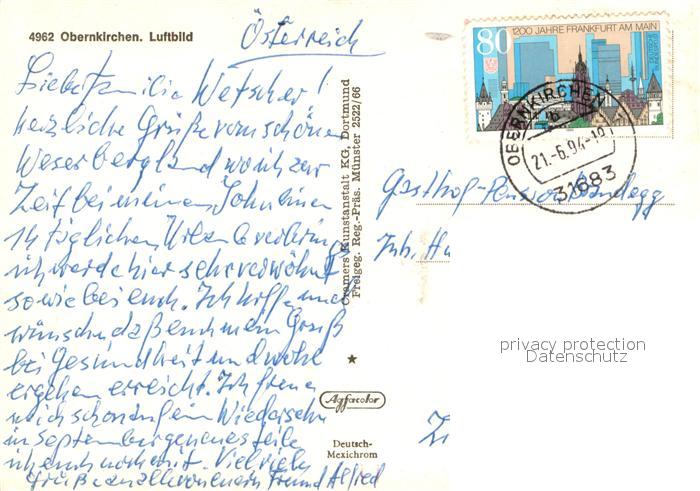 4962 Obernkirchen. Luftbild
Österreich
Liebe Familie Wetscher!
herzliche Grüße vom schönen
Weserbergland wo ich zur
Zeit bei meinem Sohn einen
14 täglichen Urlaub verbring
ich werde hier sehr verwöhnt
so wie bei euch. Ich hoffe und
wünsche, daß euch mein Gruß
bei Gesundheit und wohl
ergehen erreicht. Ich freue
mich schon auf ein Wiedersehn
in September genaues teile
ich euch noch mit. Viel viele
Grüße an alle von eurem Freund Alfred
Cramers Kunstanstalt KG, Dortmund
Freigeg. Reg.-Präs. Münster 2522/66
Agfacolor
Deutsch-
Mexichrom
80
1200 JAHRE FRANKFURT AM MAIN
DEUTSCHE BUNDESPOST
OBERNKIRCHEN
21.-6.94-19
31683
Gasthof-Pension
Inh. Hu
privacy protection
Datenschutz